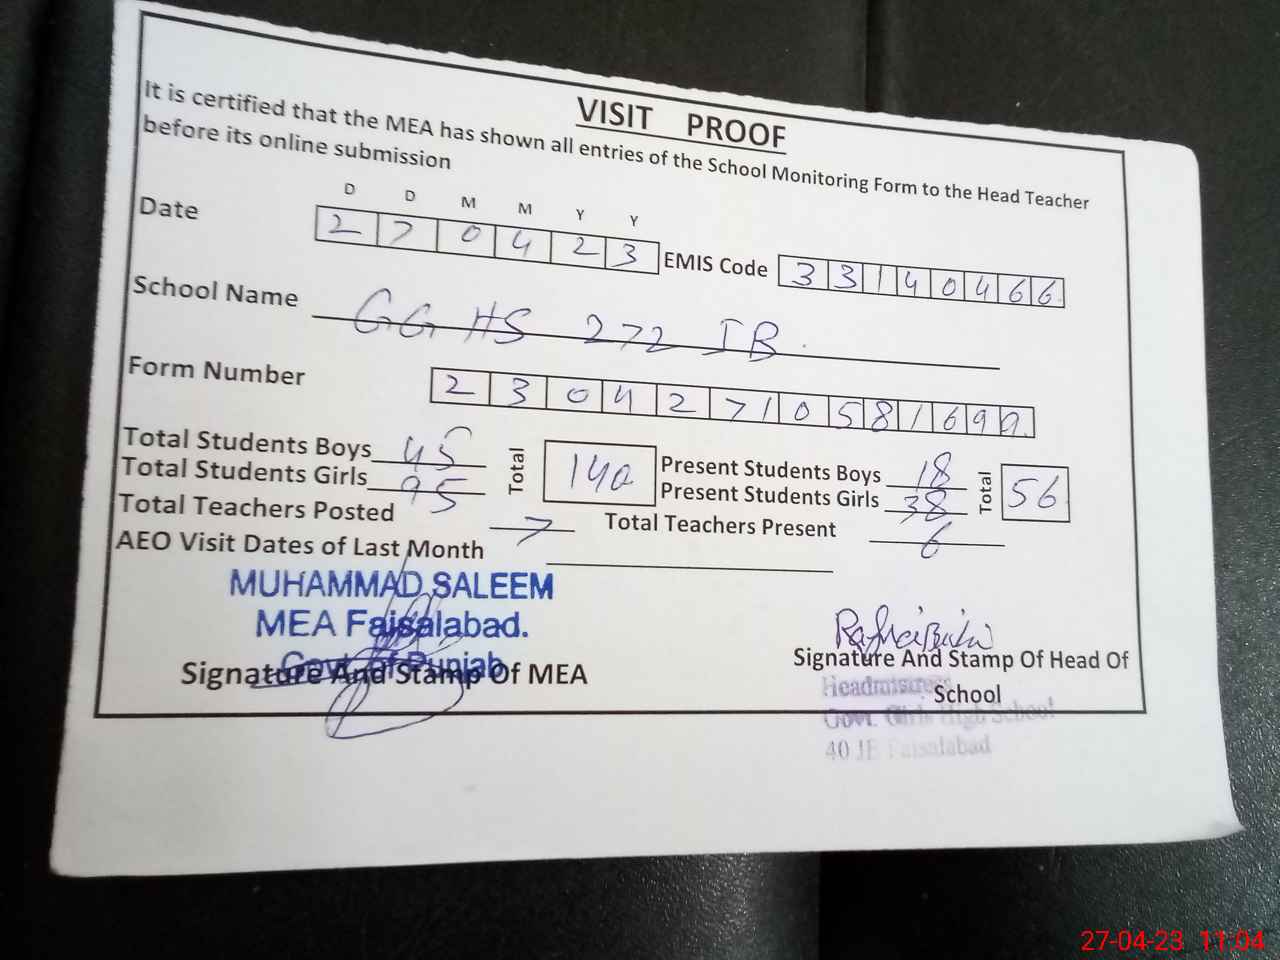 VISIT PROOF
It is certified that the MEA has shown all entries of the School Monitoring Form to the Head Teacher
before its online submission
D D M M Y Y
Date 2 7 0 4 2 3 EMIS Code 3 3 1 4 0 4 6 6
School Name GG HS 272 JB
Form Number 2 3 0 4 2 7 1 0 5 8 1 6 9
Total Students Boys 45 Total 140 Present Students Boys 18 Total 56
Total Students Girls 95 Present Students Girls 38
Total Teachers Posted 7 Total Teachers Present 6
AEO Visit Dates of Last Month
MUHAMMAD SALEEM
MEA Faisalabad.
Govt. of Punjab
Signature And Stamp Of MEA
Signature And Stamp Of Head Of
School
Headmistress
Govt. Girls High School
40 JB Faisalabad
27-04-23 11:04